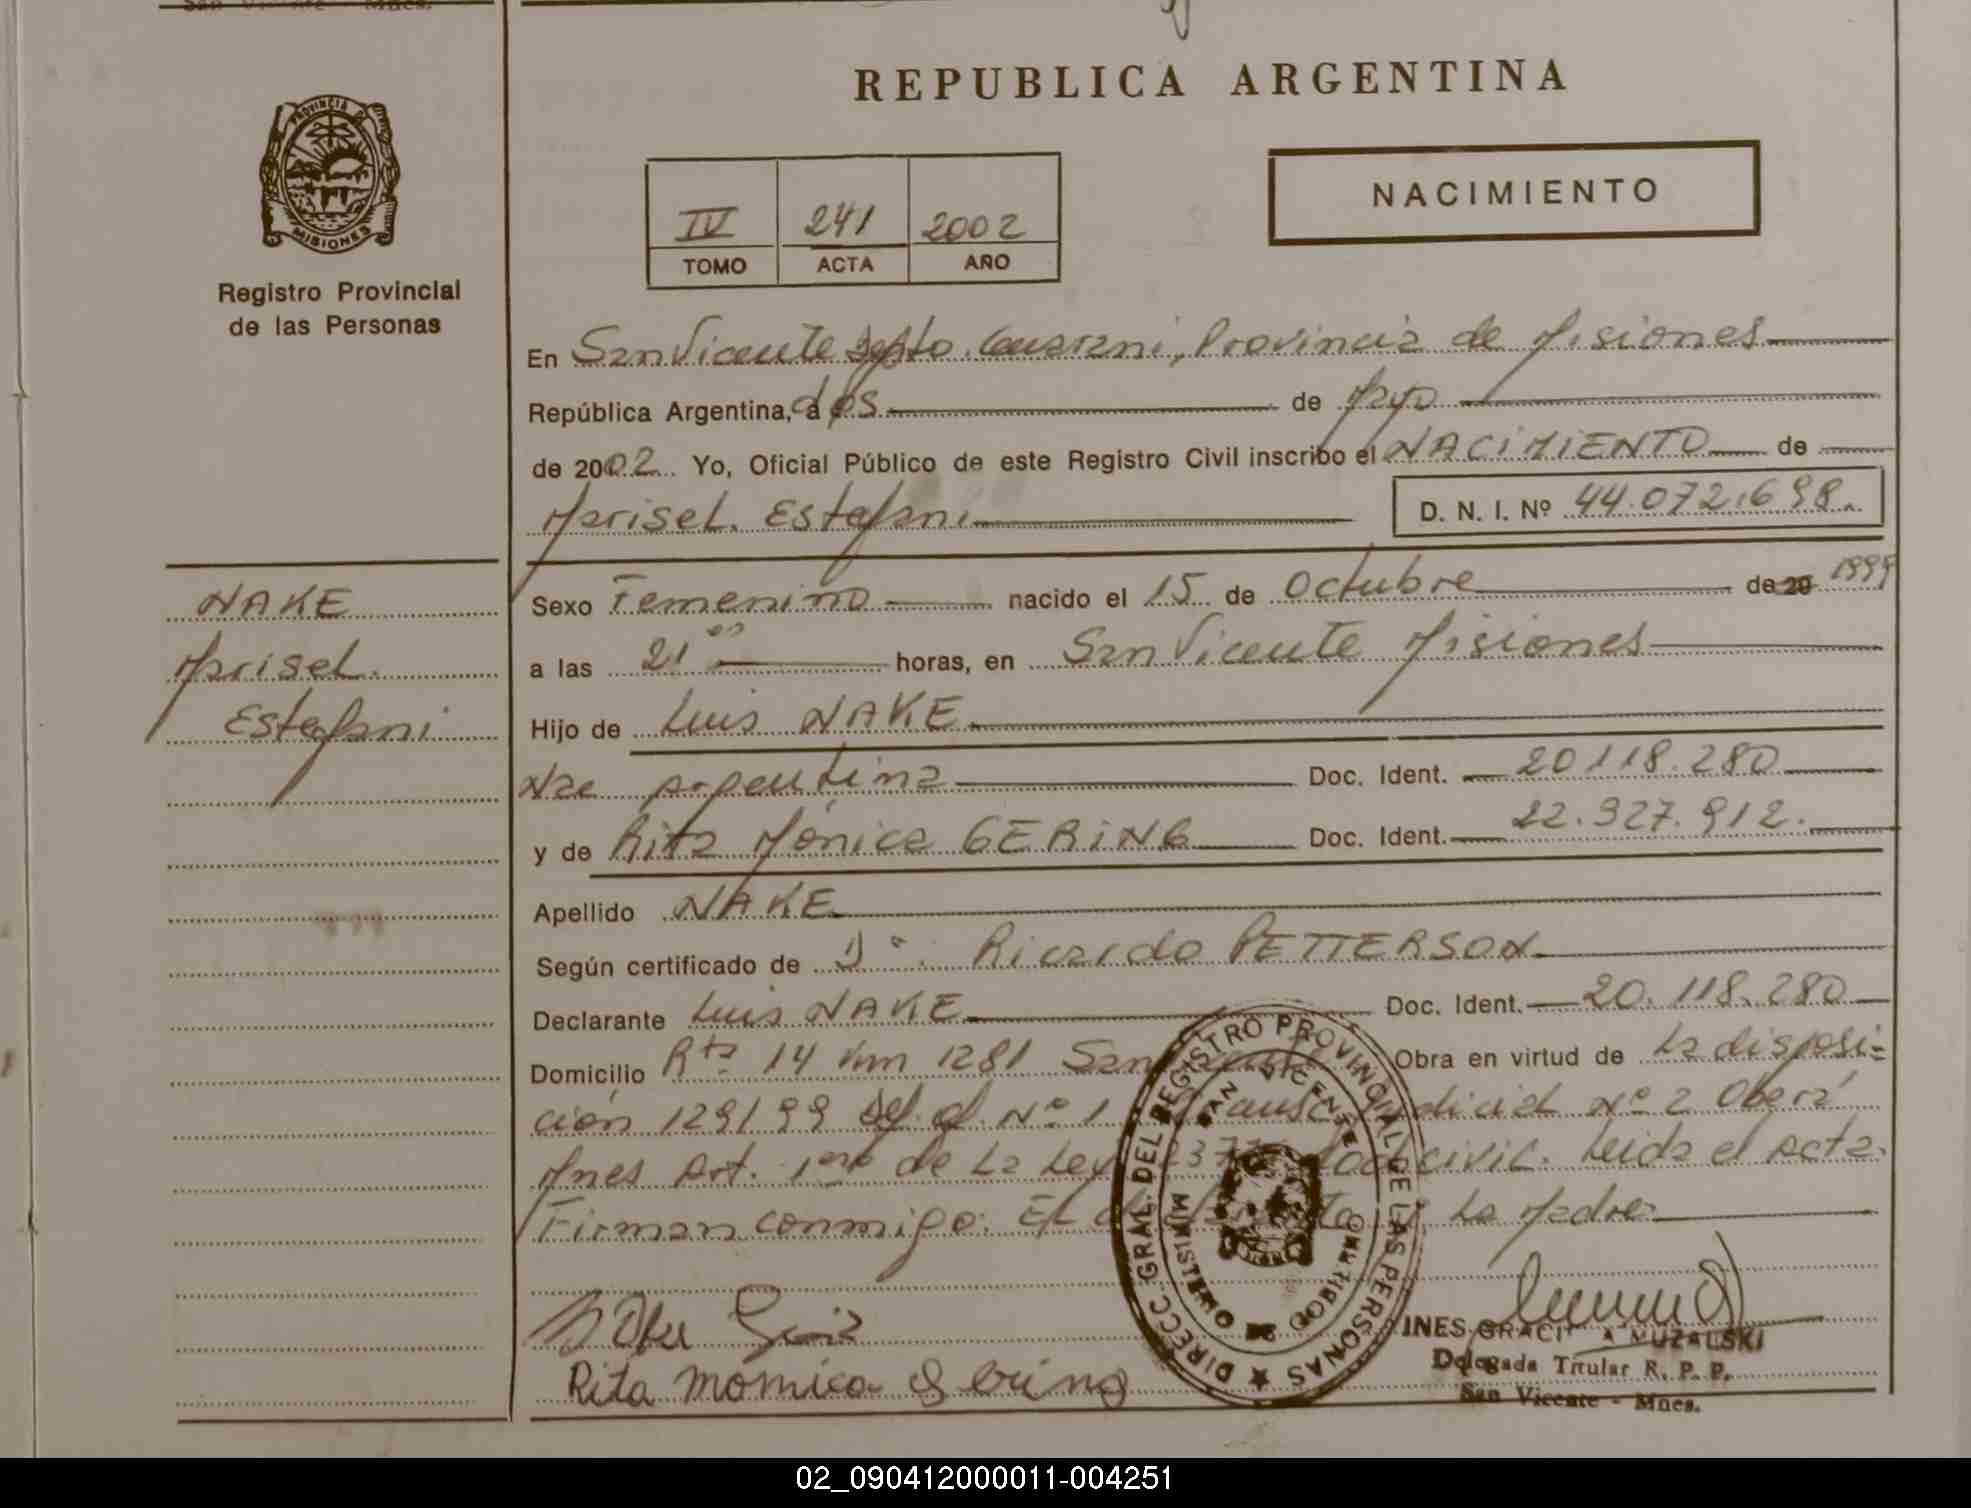 San Vicente - Mnes.
REPUBLICA ARGENTINA
PROVINCIA DE
MISIONES
Registro Provincial
de las Personas
IV 241 2002
TOMO ACTA AÑO
NACIMIENTO
En San Vicente Depto. Guarani, Provincia de Misiones
República Argentina, a dos de Mayo
de 2002. Yo, Oficial Público de este Registro Civil inscribo el NACIMIENTO de
Marisel Estefani D. N. I. Nº 44.072.698.
NAKE
Marisel
Estefani
Sexo Femenino nacido el 15 de Octubre de 20 1999
a las 21 00 horas, en San Vicente Misiones
Hijo de Luis NAKE
Nac argentina Doc. Ident. 20118.280
y de Rita Mónica GERING Doc. Ident. 22.927.912.
Apellido NAKE
Según certificado de Ricardo PETTERSON
Declarante Luis NAKE Doc. Ident. 20.118.280
Domicilio Rta 14 Km 1281 San Vicente Obra en virtud de La disposi-
ción 129/99 del Nº 1 Judicial Nº 2 Oberá
Mnes Art. 1ero de La Ley civil. Leida el acta.
Firman conmigo: El declarante y La Madre
Rita monica Gering
DIRECC. GRAL. DEL REGISTRO PROVINCIAL DE LAS PERSONAS
MINISTERIO DE GOBIERNO
SAN VICENTE
INES GRACIELA MUZALSKI
Delegada Titular R. P. P.
San Vicente - Mnes.
02_090412000011-004251